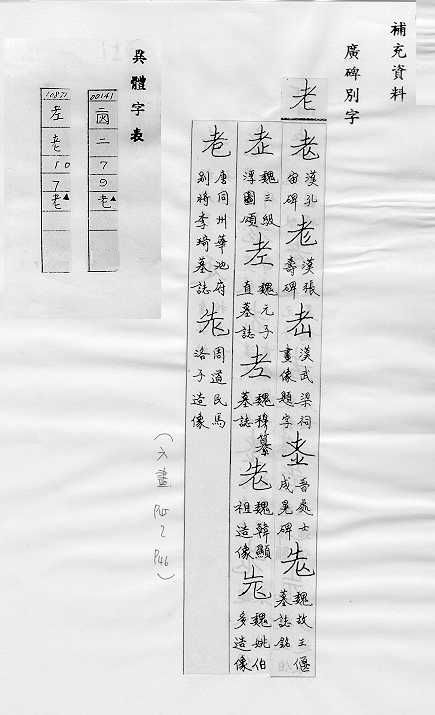 補充資料
廣碑別字
老
老 漢孔宙碑 老 漢張壽碑 漢武梁祠畫像題字 晉處士成晃碑 魏故王偃墓誌銘
魏三級浮圖頌 魏元子直墓誌 魏穆纂墓誌 魏韓顯祖造像 魏姚伯多造像
唐同州華池府別將李琦墓誌 周道民馬洛子造像
(六畫 P45 P46)
異體字表
00141 二 7 9 老▲
10871 老 10 7 老▲